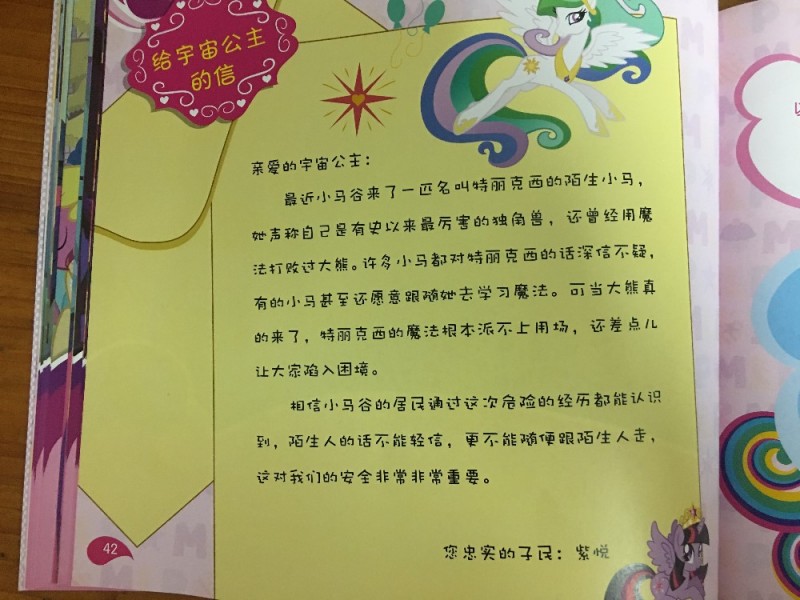 给宇宙公主
的信
亲爱的宇宙公主：
最近小马谷来了一匹名叫特丽克西的陌生小马，
她声称自己是有史以来最厉害的独角兽，还曾经用魔
法打败过大熊。许多小马都对特丽克西的话深信不疑，
有的小马甚至还愿意跟随她去学习魔法。可当大熊真
的来了，特丽克西的魔法根本派不上用场，还差点儿
让大家陷入困境。
相信小马谷的居民通过这次危险的经历都能认识
到，陌生人的话不能轻信，更不能随便跟陌生人走，
这对我们的安全非常非常重要。
您忠实的子民：紫悦
42